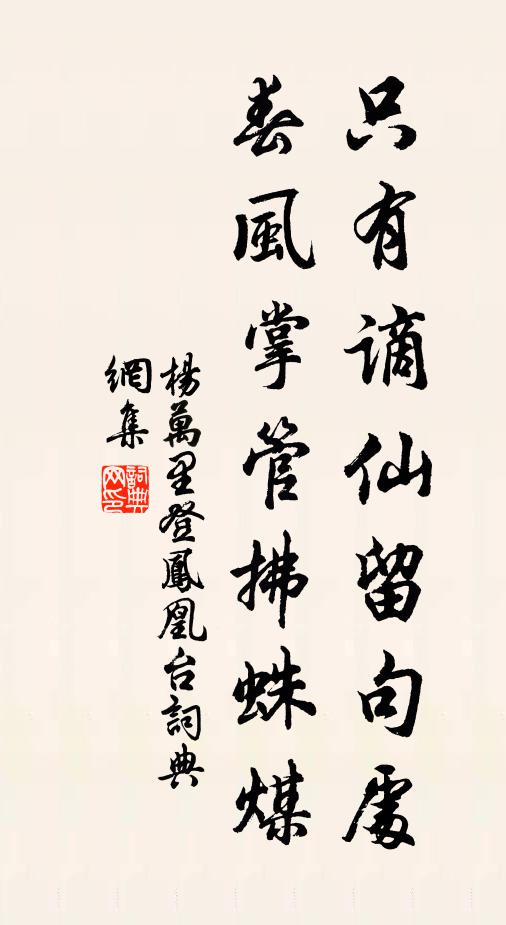 只有謫仙留句處
春風掌管拂蛛煤
楊萬里登鳳凰台詞典
網集
詞典網印